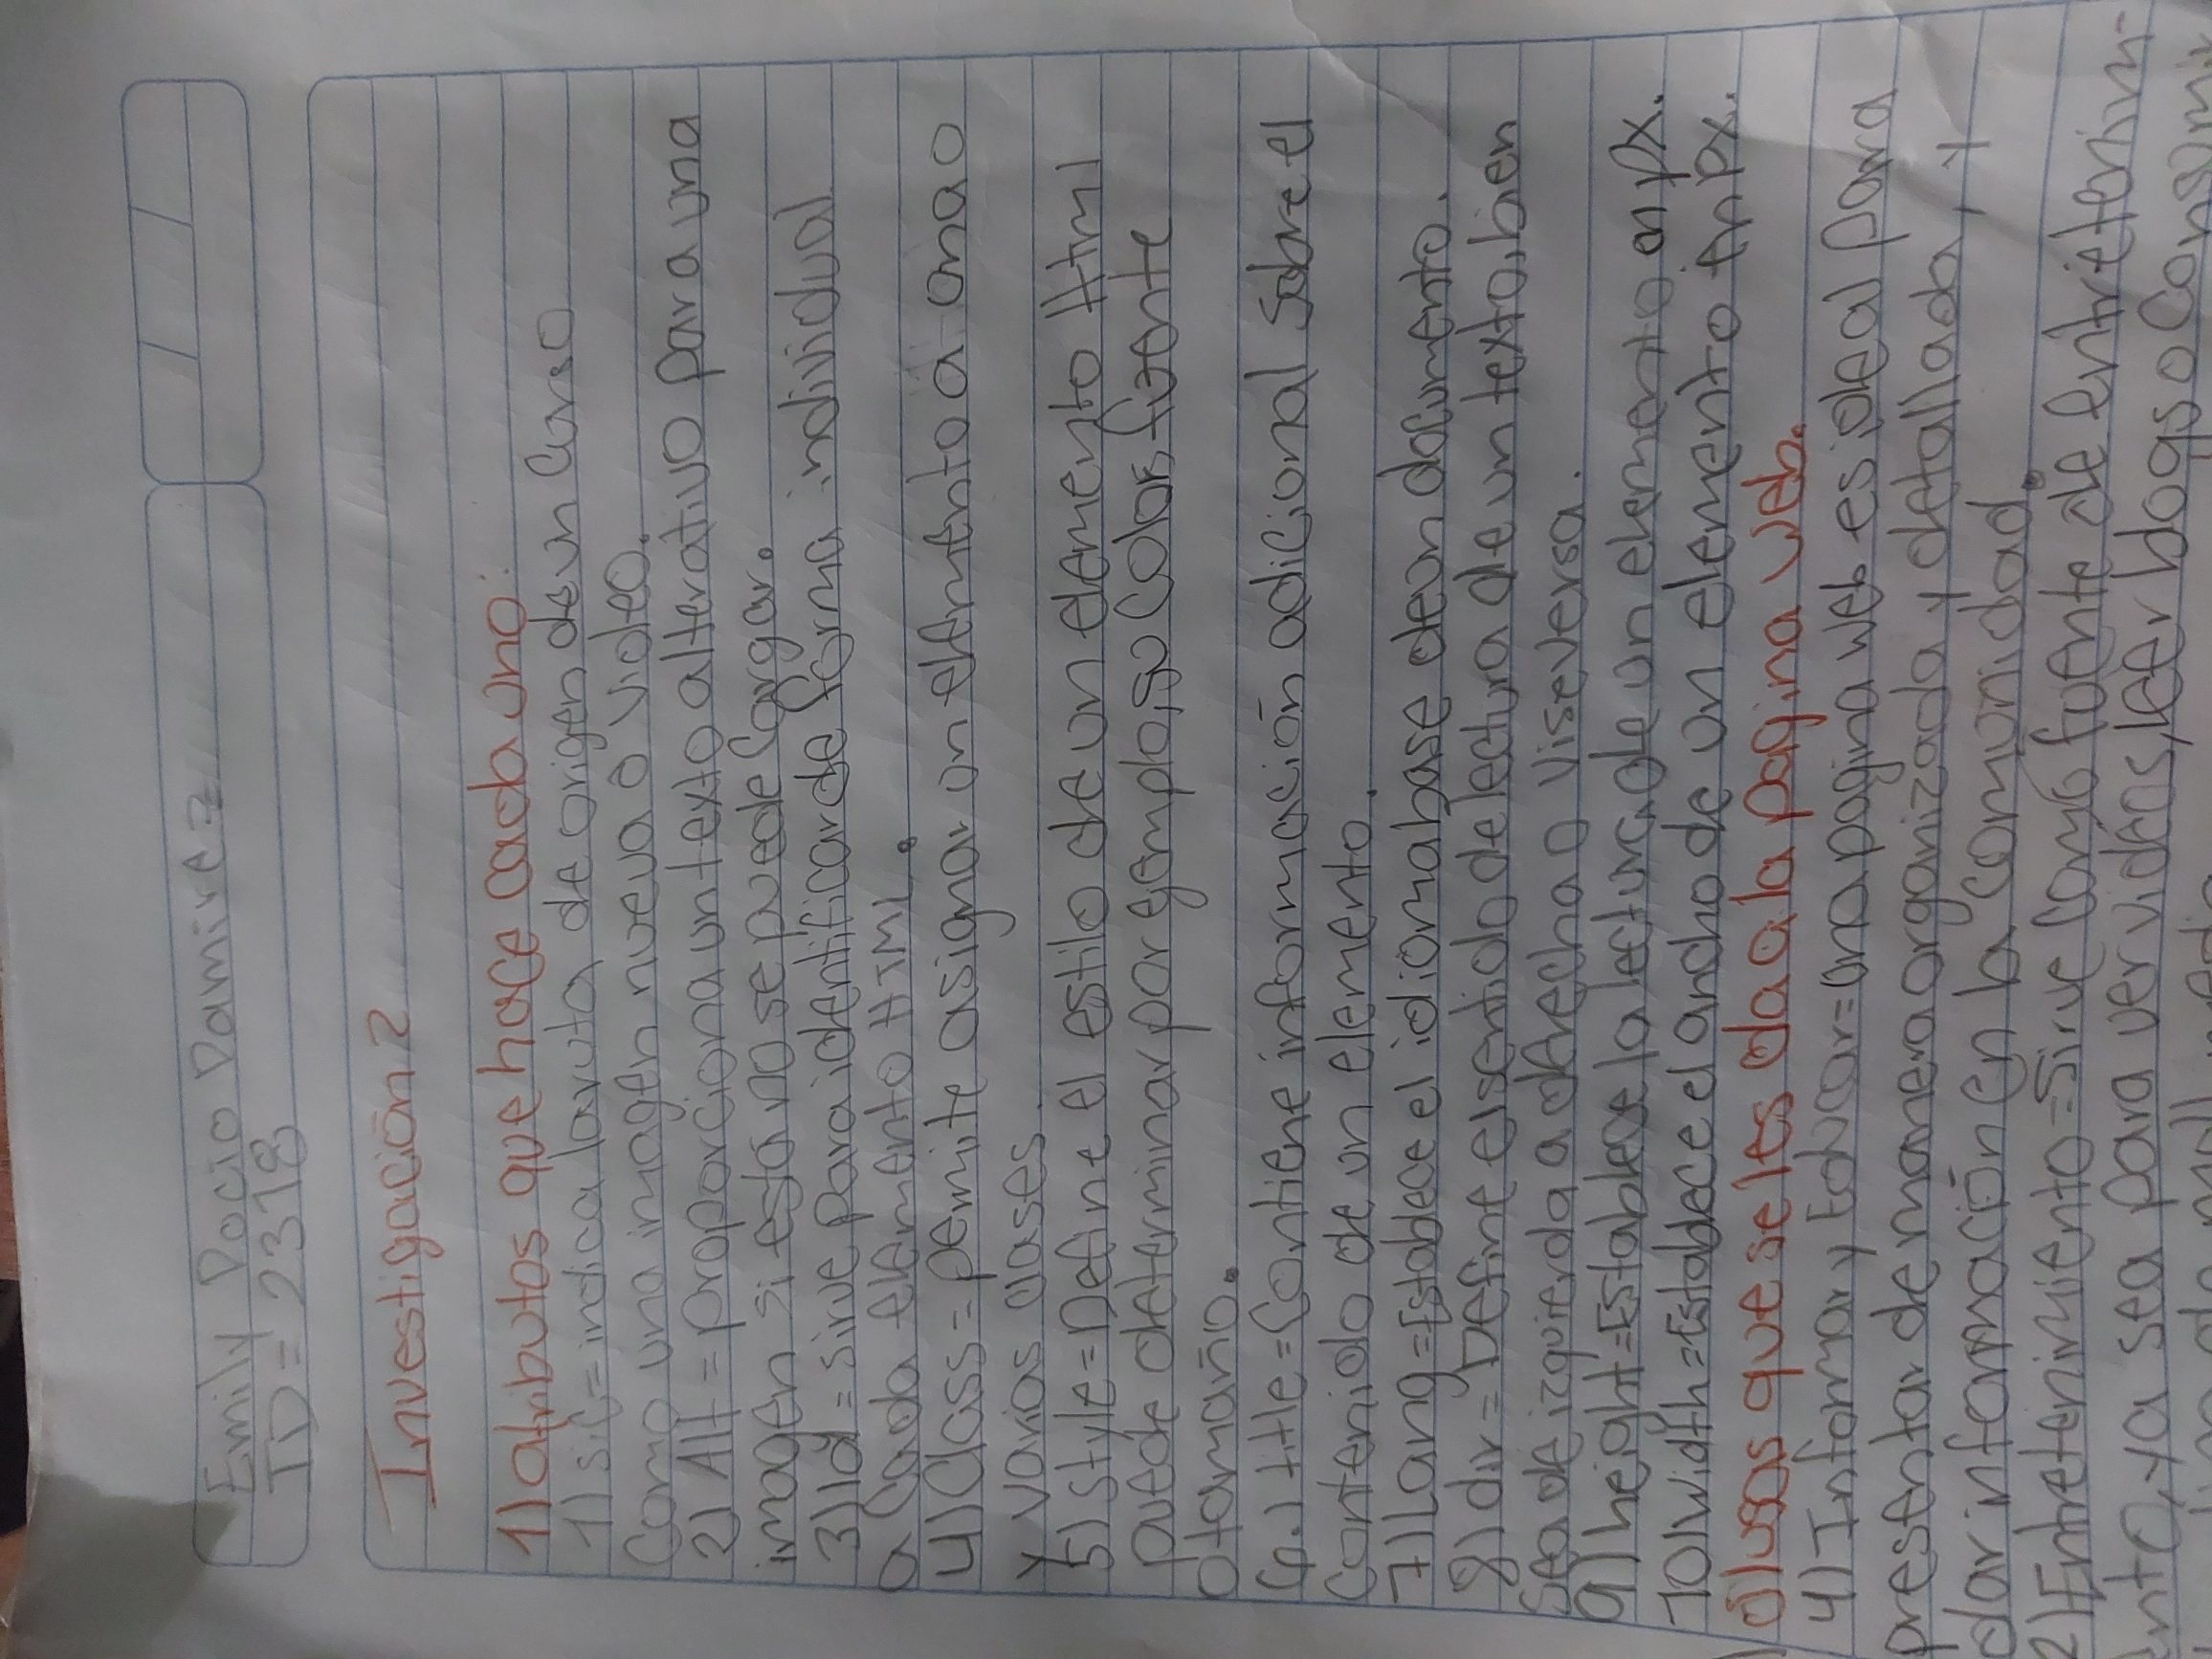 Emily Rocio Ramirez
ID = 2318
Investigación 2
1) atributos que hace cada uno:
1) src = indica la ruta de origen de un curso
Como una imagen nueva o video.
2) Alt = proporciona un texto alterativo para una
imagen si esta no se puede Cargar.
3) Id = sirve para identificar de forma individual
a Cada elemento HTML.
4) Class = permite asignar un elemento a una o
y varias clases.
5) style = Define el estilo de un elemento Html
puede determinar por ejemplo, su Color, fuente
o tamaño.
6.) title = Contiene información adicional Sobre el
Contenido de un elemento.
7) Lang = Establece el idioma base de un documento.
8) dir = Define el sentido de lectura de un texto, bien
Sea de izquierda a derecha o viseversa.
9) height = Establece la lectura, de un elemento en px.
10) width = Establece el ancho de un elemento en px.
usos que se les da a la pagina web.
4) Informar y Educar = una pagina web es ideal para
presentar de manera organizada y detallada, y
dar información en la Comunidad.
2) Entretenimiento = Sirve como fuente de Entretenim-
ento, ya sea para ver videos, leer blogs o Consumir